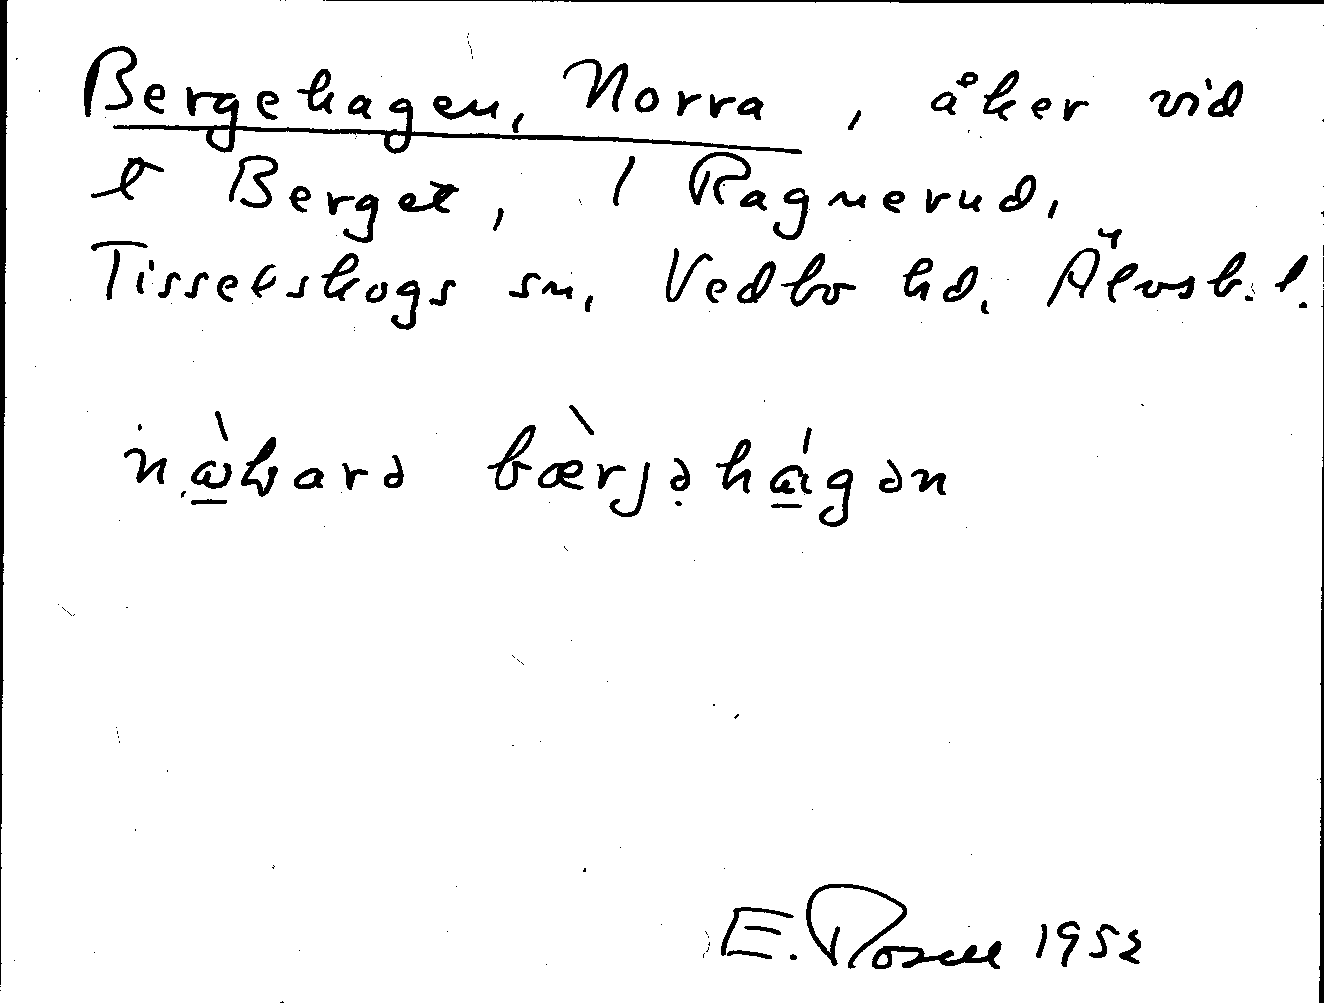 Bergehagen, Norra, åker vid
t Berget, 1 Ragnerud,
Tisselskogs sn, Vedbo hd, Älvsb. l.
bærjəhágən
E. Rosell 1952